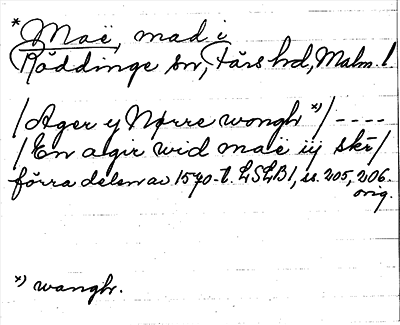 * Maë, mad i
Röddinge sn, Färs hd, Malm. l
/Ager y Nørre wongh *)/ ----
/En agir wid maë iij skr̄/
förra delen av 1570-t. LSLB1, ss. 205, 206.
orig.
*) wangh.